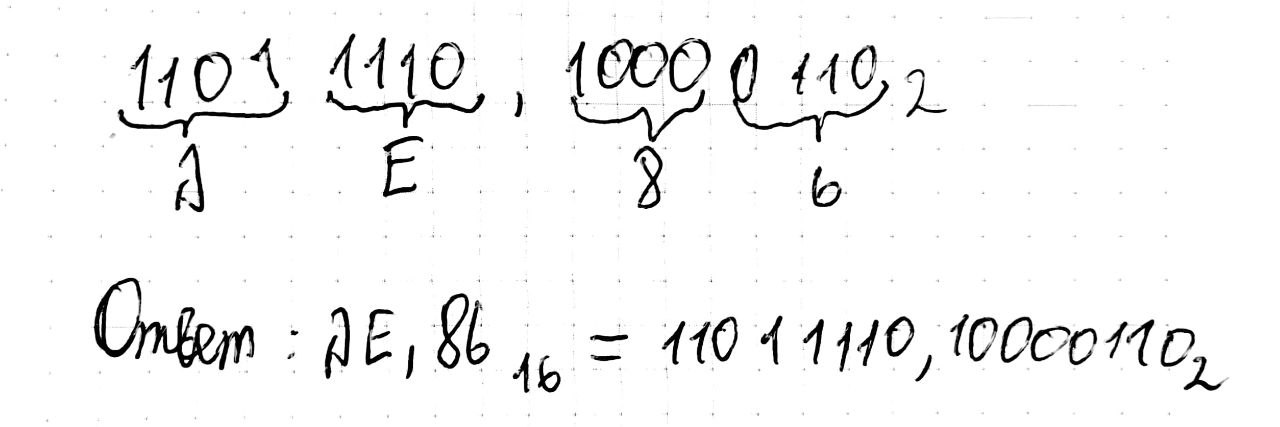 1101 1110, 1000 0110 2
A E 8 6
Ответ: AE, 86 16 = 11011110, 10000110 2